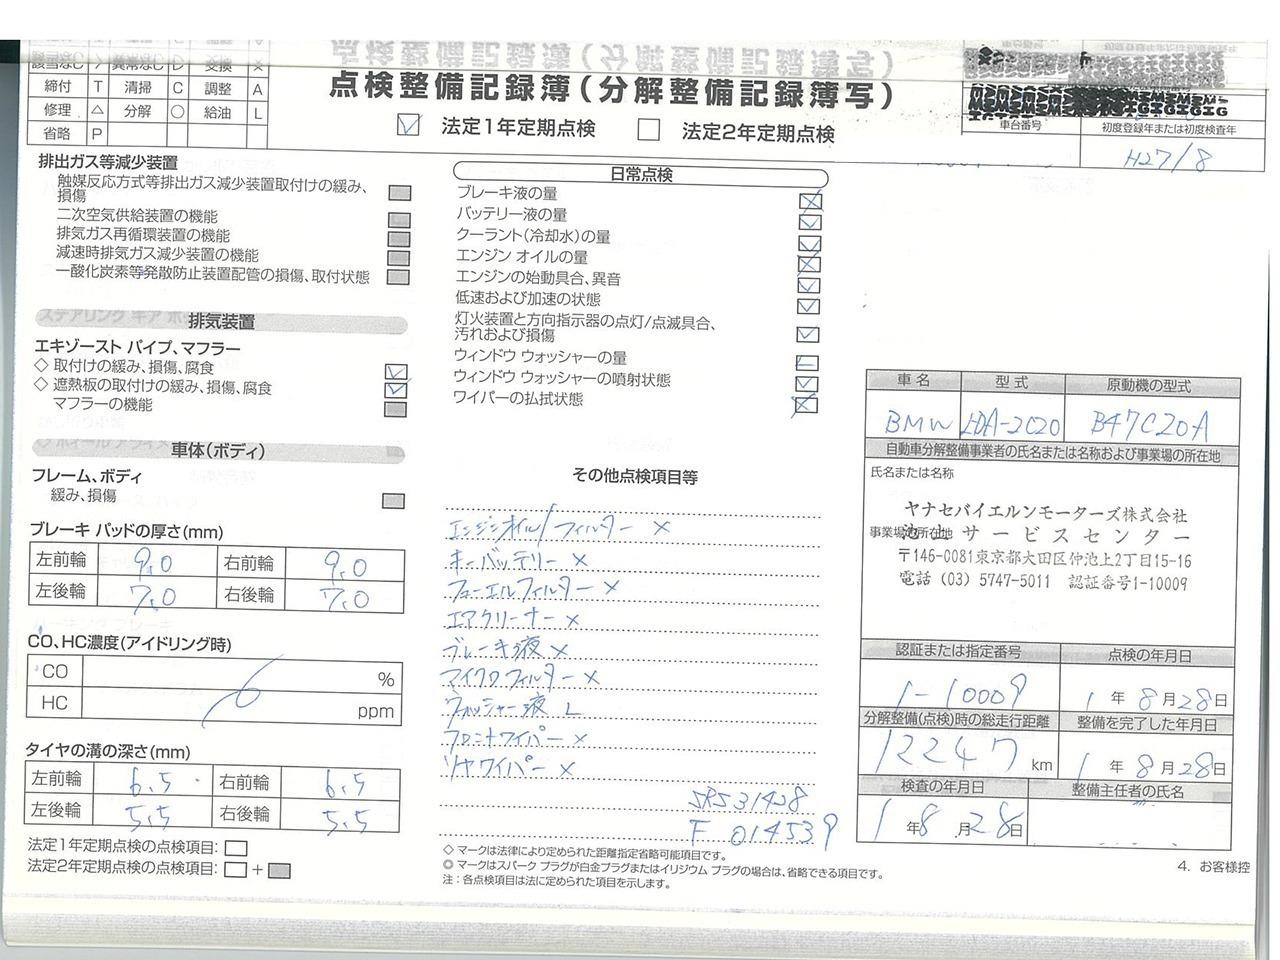 該当なし / 異常なし レ 交換 ×
締付 T 清掃 C 調整 A
修理 △ 分解 ○ 給油 L
省略 P
点検整備記録簿(分解整備記録簿写)
法定1年定期点検 法定2年定期点検
車台番号 初度登録年または初度検査年
H27/8
排出ガス等減少装置
触媒反応方式等排出ガス減少装置取付けの緩み、
損傷
二次空気供給装置の機能
排気ガス再循環装置の機能
減速時排気ガス減少装置の機能
一酸化炭素等発散防止装置配管の損傷、取付状態
排気装置
エキゾースト パイプ、マフラー
◇ 取付けの緩み、損傷、腐食
◇ 遮熱板の取付けの緩み、損傷、腐食
マフラーの機能
車体(ボディ)
フレーム、ボディ
緩み、損傷
ブレーキ パッドの厚さ(mm)
左前輪 9.0 右前輪 9.0
左後輪 7.0 右後輪 7.0
CO、HC濃度(アイドリング時)
CO %
HC ppm
タイヤの溝の深さ(mm)
左前輪 6.5 右前輪 6.5
左後輪 5.5 右後輪 5.5
法定1年定期点検の点検項目:
法定2年定期点検の点検項目: +
日常点検
ブレーキ液の量
バッテリー液の量
クーラント(冷却水)の量
エンジン オイルの量
エンジンの始動具合、異音
低速および加速の状態
灯火装置と方向指示器の点灯/点滅具合、
汚れおよび損傷
ウィンドウ ウォッシャーの量
ウィンドウ ウォッシャーの噴射状態
ワイパーの払拭状態
その他点検項目等
エンジンオイル/フィルター ×
キーバッテリー ×
フューエルフィルター ×
エアクリーナー ×
ブレーキ液 ×
マイクロフィルター ×
ウォッシャー液 L
フロントワイパー ×
リヤワイパー ×
SR531428
F 014539
◇ マークは法律により定められた距離指定省略可能項目です。
◎ マークはスパーク プラグが白金プラグまたはイリジウム プラグの場合は、省略できる項目です。
注:各点検項目は法に定められた項目を示します。
車名 型式 原動機の型式
BMW LDA-2C20 B47C20A
自動車分解整備事業者の氏名または名称および事業場の所在地
氏名または名称
ヤナセバイエルンモーターズ株式会社
事業場の所在地
池上サービスセンター
〒146-0081東京都大田区仲池上2丁目15-16
電話(03)5747-5011 認証番号1-10009
認証または指定番号 点検の年月日
1-10009 1年8月28日
分解整備(点検)時の総走行距離 整備を完了した年月日
12247 km 1年8月28日
検査の年月日 整備主任者の氏名
1年8月28日
4. お客様控